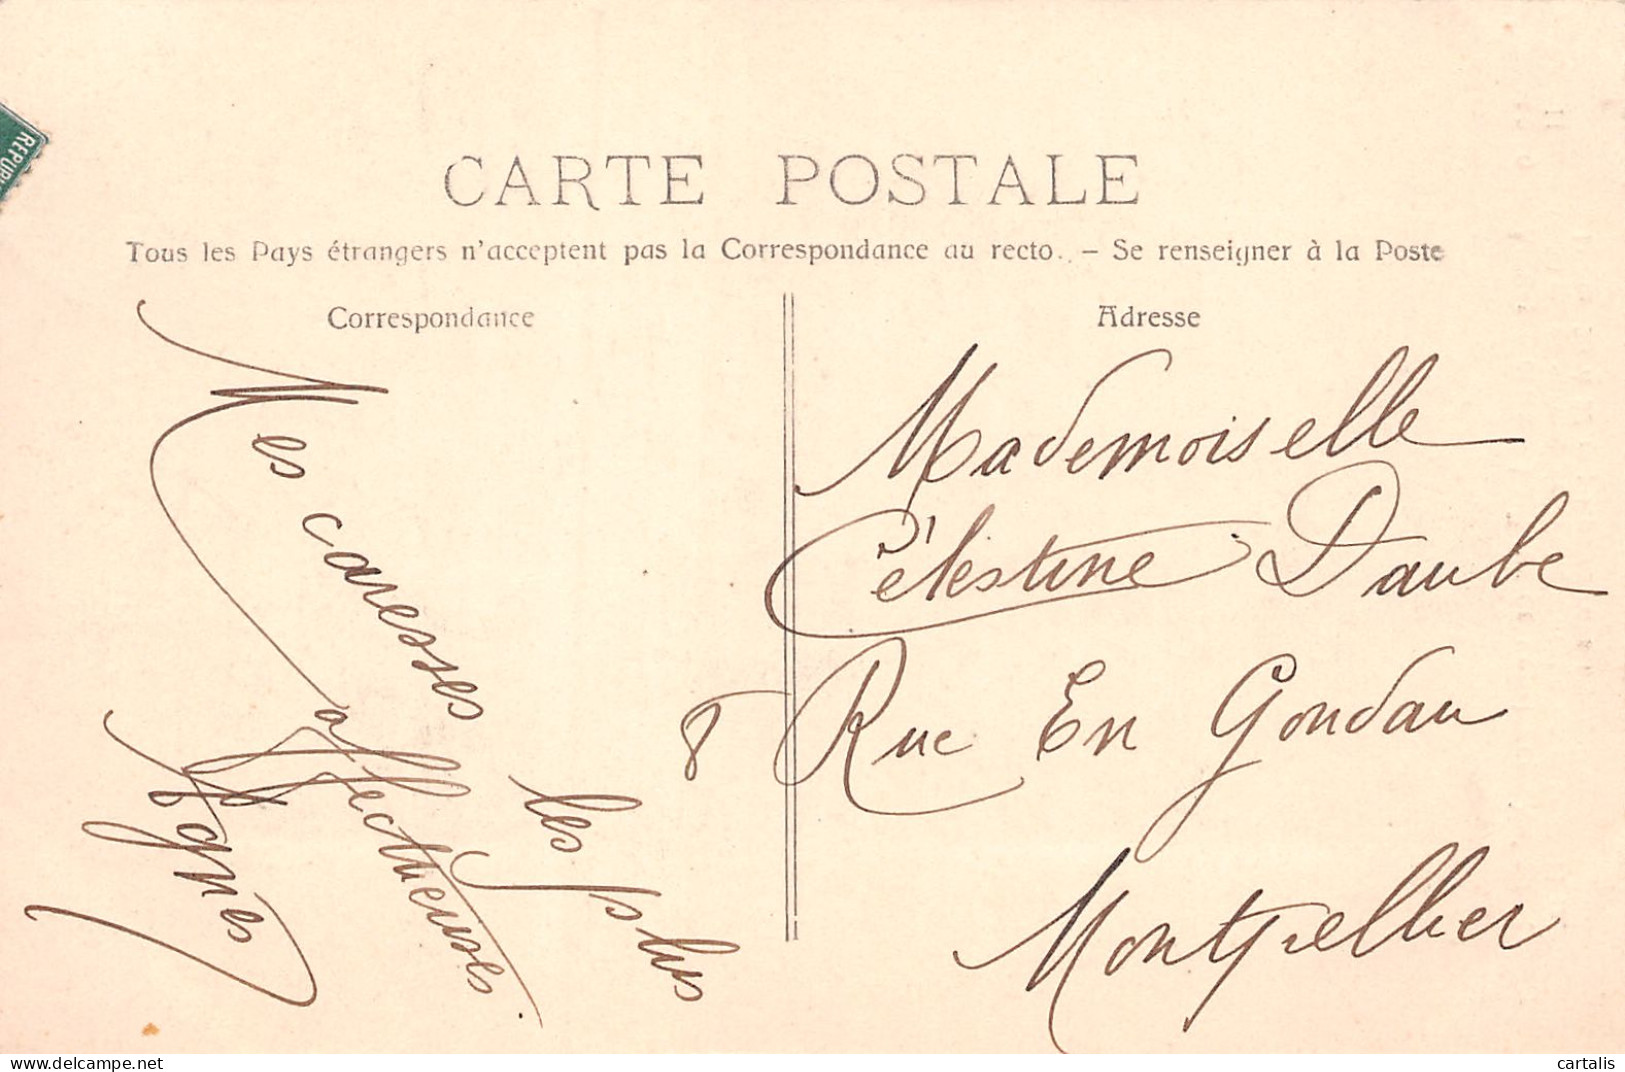 REPUB
CARTE POSTALE
Tous les Pays étrangers n'acceptent pas la Correspondance au recto. – Se renseigner à la Poste
Correspondance
Mes caresses
les plus
affectueuses.
Agnès
Adresse
Mademoiselle
Célestine Daube
8 Rue En Gondau
Montpellier
cartalis